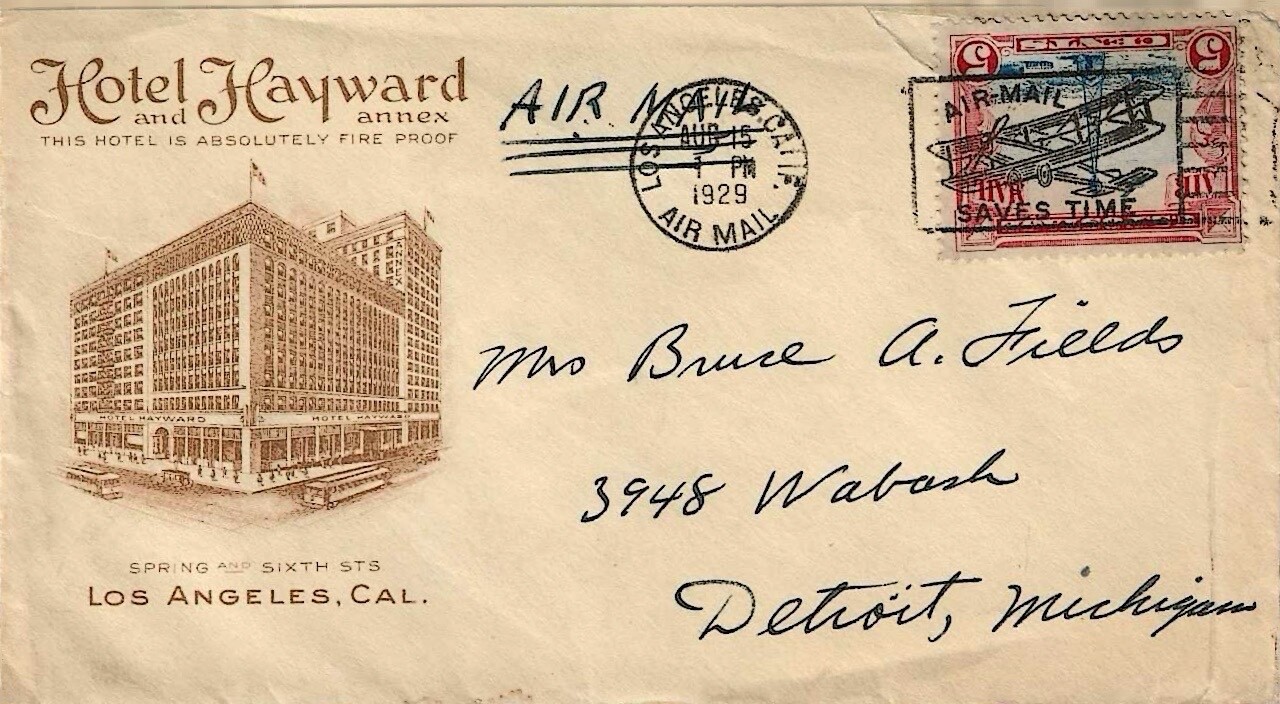 Hotel Hayward
and annex
THIS HOTEL IS ABSOLUTELY FIRE PROOF
HOTEL HAYWARD
HOTEL HAYWARD
SPRING AND SIXTH STS
LOS ANGELES, CAL.
AIR MAIL
LOS ANGELES, CALIF.
AUG 15
PM
1929
AIR MAIL
AIR MAIL
SAVES TIME
5
5
Mrs Bruce A. Fields
3948 Wabash
Detroit, Michigan